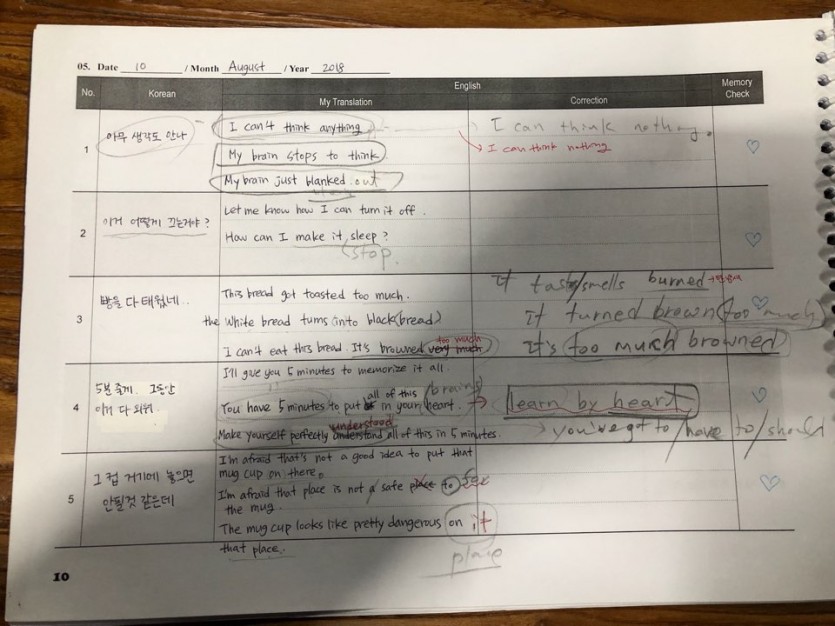 05. Date 10 / Month August / Year 2018
No. Korean English Memory Check
My Translation Correction
1 아무 생각도 안나
I can't think anything. I can think nothing.
My brain stops to think. I can think nothing
My brain just blanked out
2 이거 어떻게 끄는거야?
Let me know how I can turn it off.
How can I make it sleep?
stop.
3 빵을 다 태웠네..
This bread got toasted too much. It tast/smells burned
the White bread turns into black(bread) It turned brown too much
too much
I can't eat this bread. It's browned very much. It's too much browned
4 5분 줄게. 그동안 이거 다 외워.
I'll give you 5 minutes to memorize it all.
all of this (brains)
You have 5 minutes to put in your heart. → learn by heart
understood
Make yourself perfectly understand all of this in 5 minutes. → you've got to/have to/should
5 그 컵 거기에 놓으면 안될것 같은데
I'm afraid that's not a good idea to put that
mug cup on there.
I'm afraid that place is not a safe place to
the mug.
The mug cup looks like pretty dangerous on it
that place.
place
10